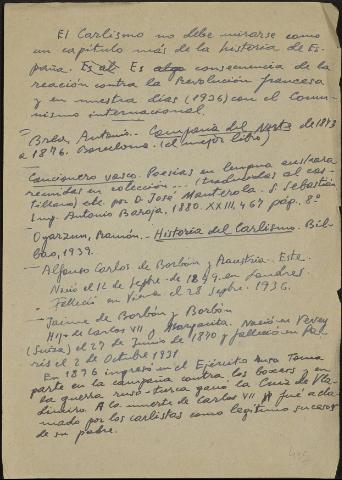 El Carlismo no debe mirarse como
un capítulo más de la historia de Es-
paña. Es al Es algo consecuencia de la
reacción contra la Revolución francesa
y en nuestra días (1936) con el Comu-
nismo internacional.
- Brea, Antonio.- Campaña del Norte de 1873
a 1876. Barcelona. (el mejor libro)
- Cancionero vasco. Poesías en lengua euskara
reunidas en colección... (traducidas al cas-
tellano) etc. por D. José Manterola. S. Sebastián
Imp. Antonio Baroja, 1880. XXIII, 467 pág. 8º
- Oyarzun, Ramón.- Historia del Carlismo. Bil-
bao, 1939.
- Alfonso Carlos de Borbón y Austria. Este.
Nació el 12 de Septbre. de 1849. en Londres.
Falleció en Viena el 28 Septbre. 1936.
- Jaime de Borbón y Borbón
Hijo de Carlos VII y Margarita. Nació en Vevey
(Suiza) el 27 de Junio de 1870 y falleció en Pa-
rís el 2 de Octubre 1931
En 1896 ingresó en el Ejército ruso. Toma
parte en la campaña contra los boxers y en
la guerra ruso-turca ganó la Cruz de Vla-
dimiro. A la muerte de Carlos VII fué acla-
mado por los carlistas como legítimo sucesor
de su padre.